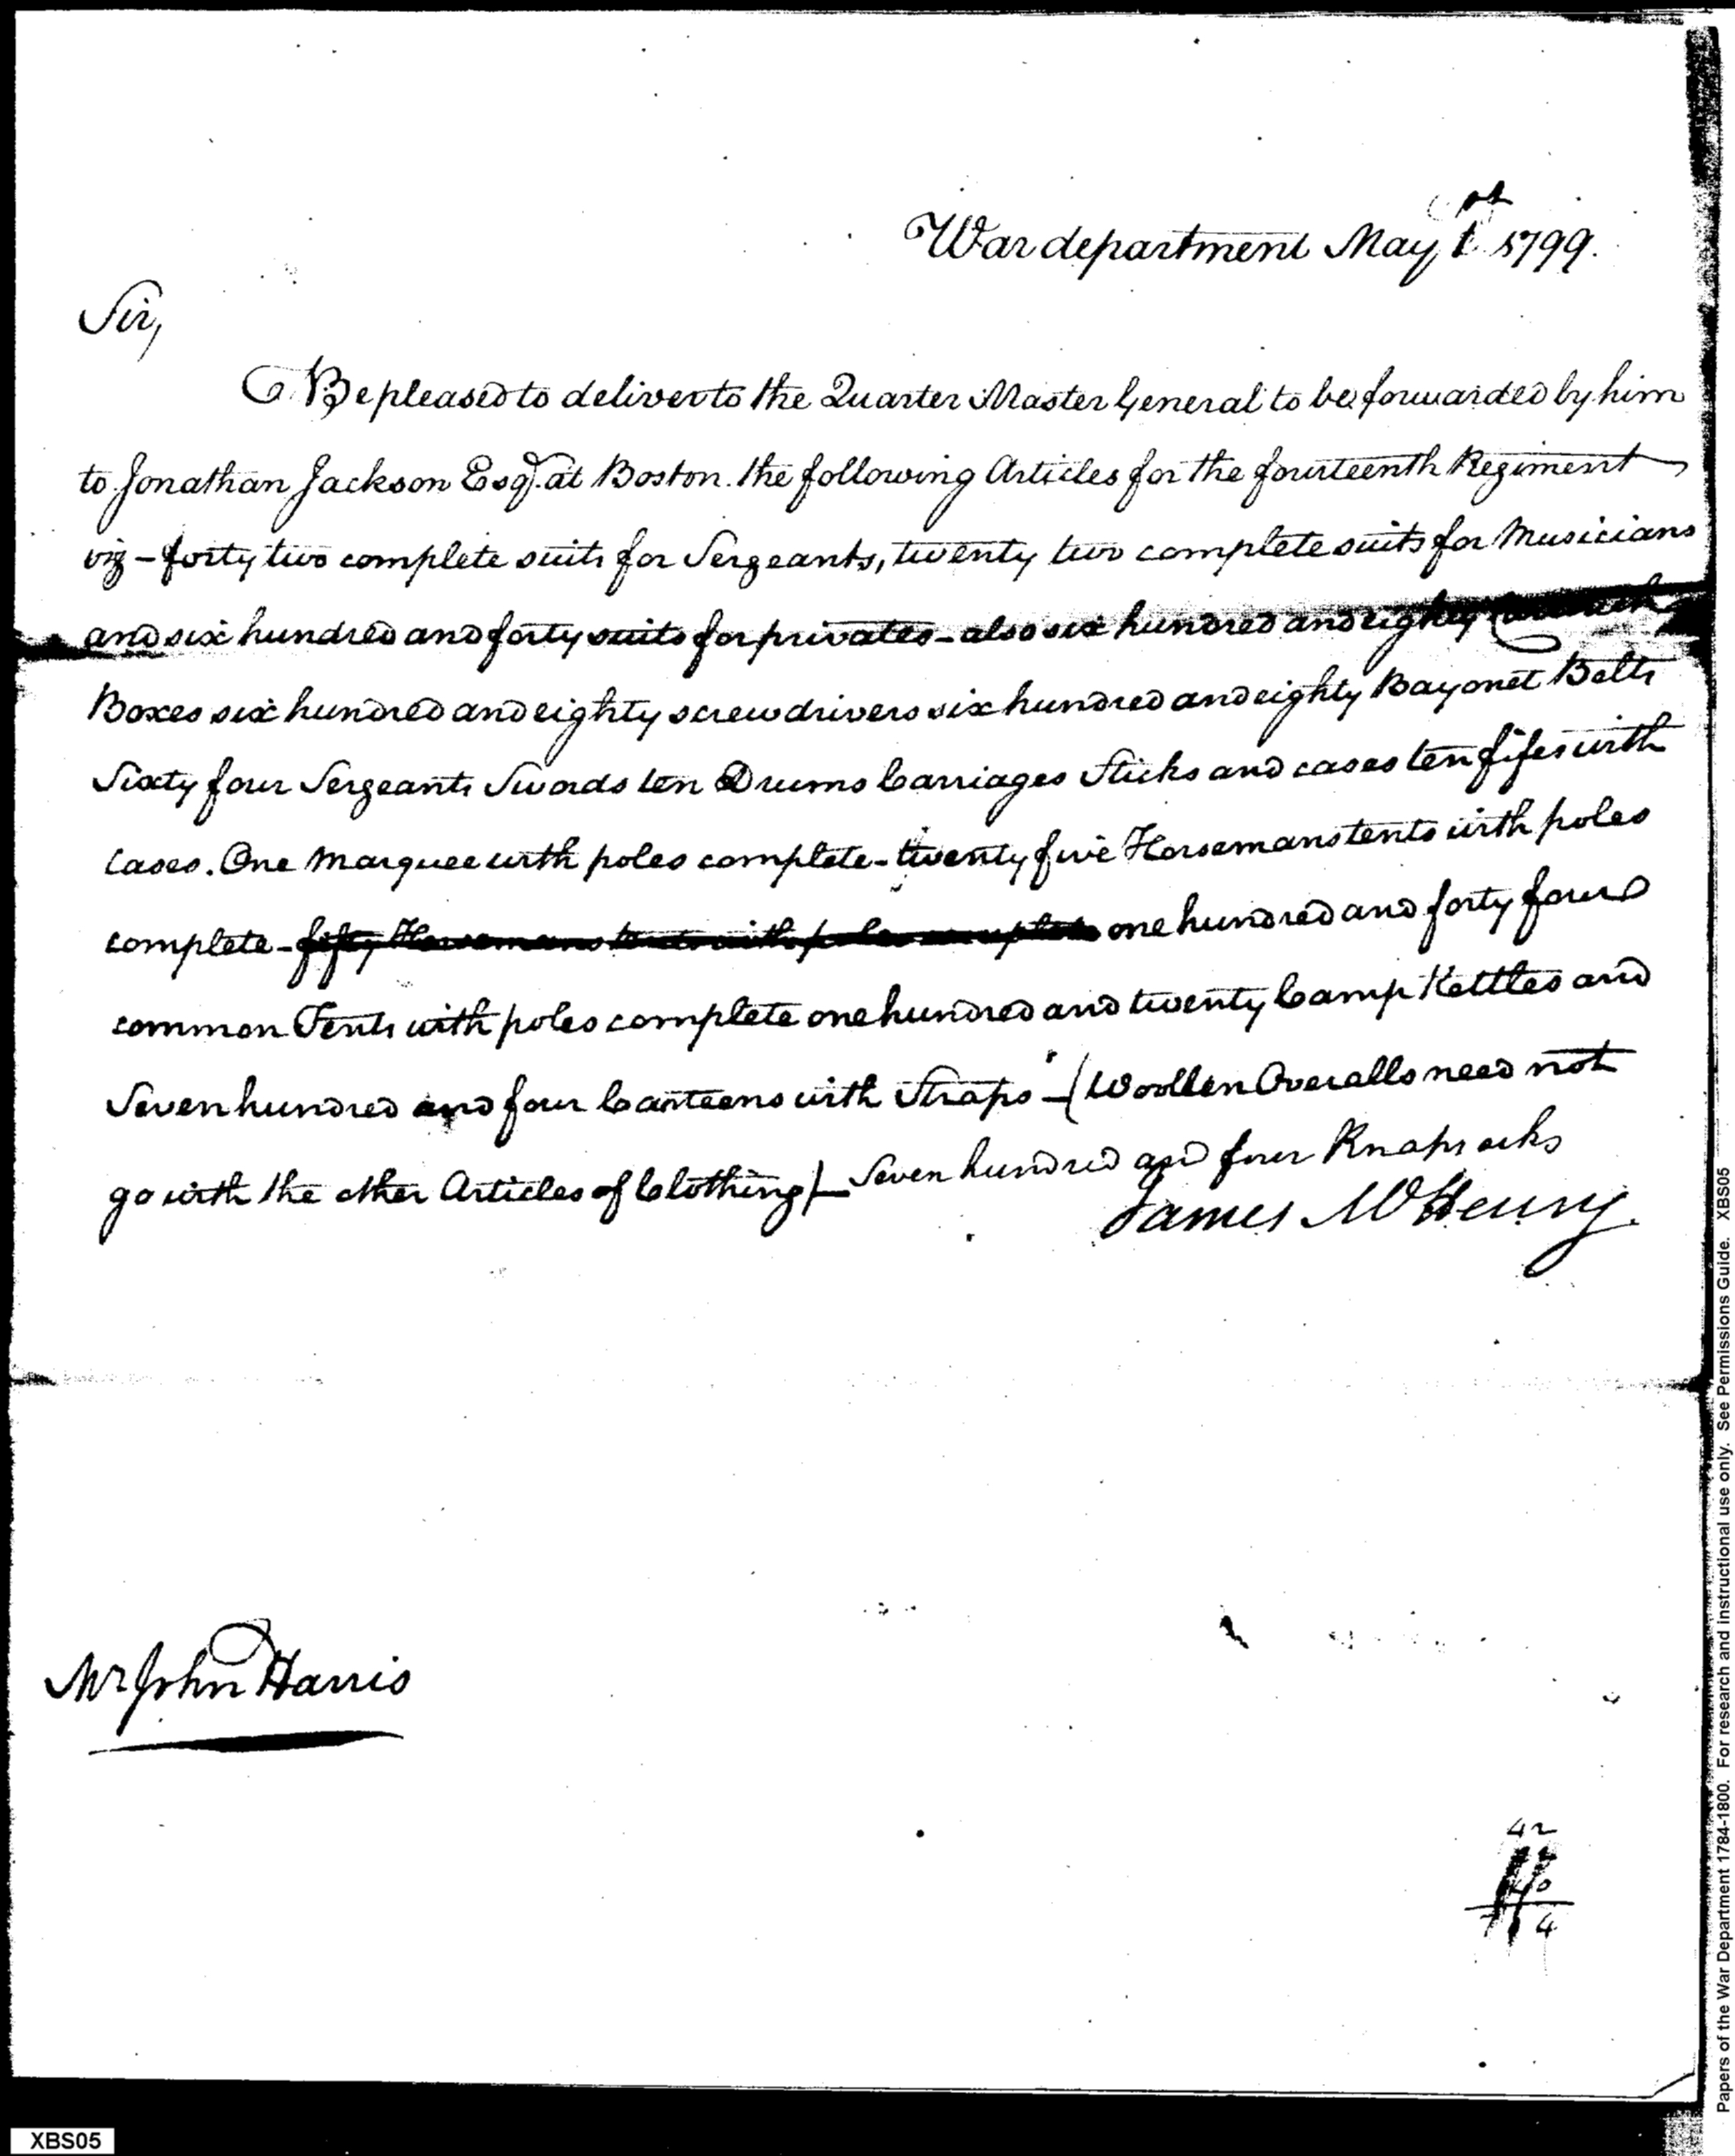 War department May 1st 1799.
Sir,
Be pleased to deliver to the Quarter Master General to be forwarded by him
to Jonathan Jackson Esqr. at Boston. the following Articles for the fourteenth Regiment
viz – forty two complete suits for Sergeants, twenty two complete suits for Musicians
and six hundred and forty suits for privates – also six hundred and eighty Cartouch
Boxes six hundred and eighty screw drivers six hundred and eighty Bayonet Belts
Sixty four Sergeants Swords ten Drums Carriages Sticks and cases ten fifes with
Cases. One Marquee with poles complete – twenty five Horsemans tents with poles
complete – fifty Horsemans tents with poles complete one hundred and forty four
common Tents with poles complete one hundred and twenty Camp Kettles and
Seven hundred and four Canteens with Straps – (Woollen Overalls need not
go with the other Articles of Clothing) – Seven hundred and four Knapsacks
James McHenry.
Mr John Harris
42
4
XBS05
Papers of the War Department 1784-1800. For research and instructional use only. See Permissions Guide. XBS05